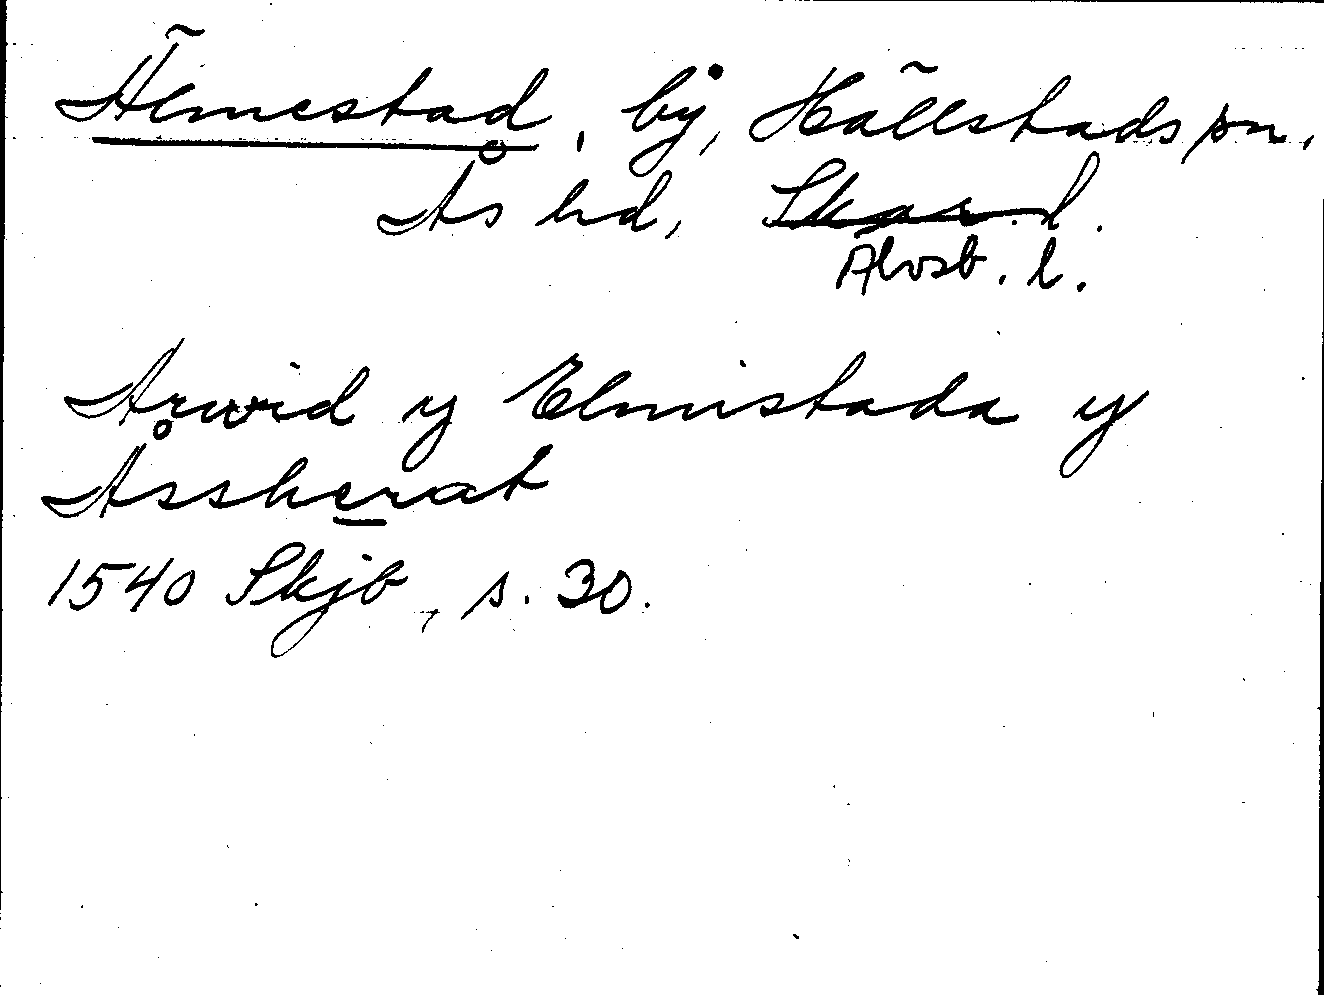 Älmestad, by, Hällstads sn.
Ås hd, Skar. l.
Älvsb. l.
Arwid y Elmistada y
Åssherat
1540 Skjb, s. 30.